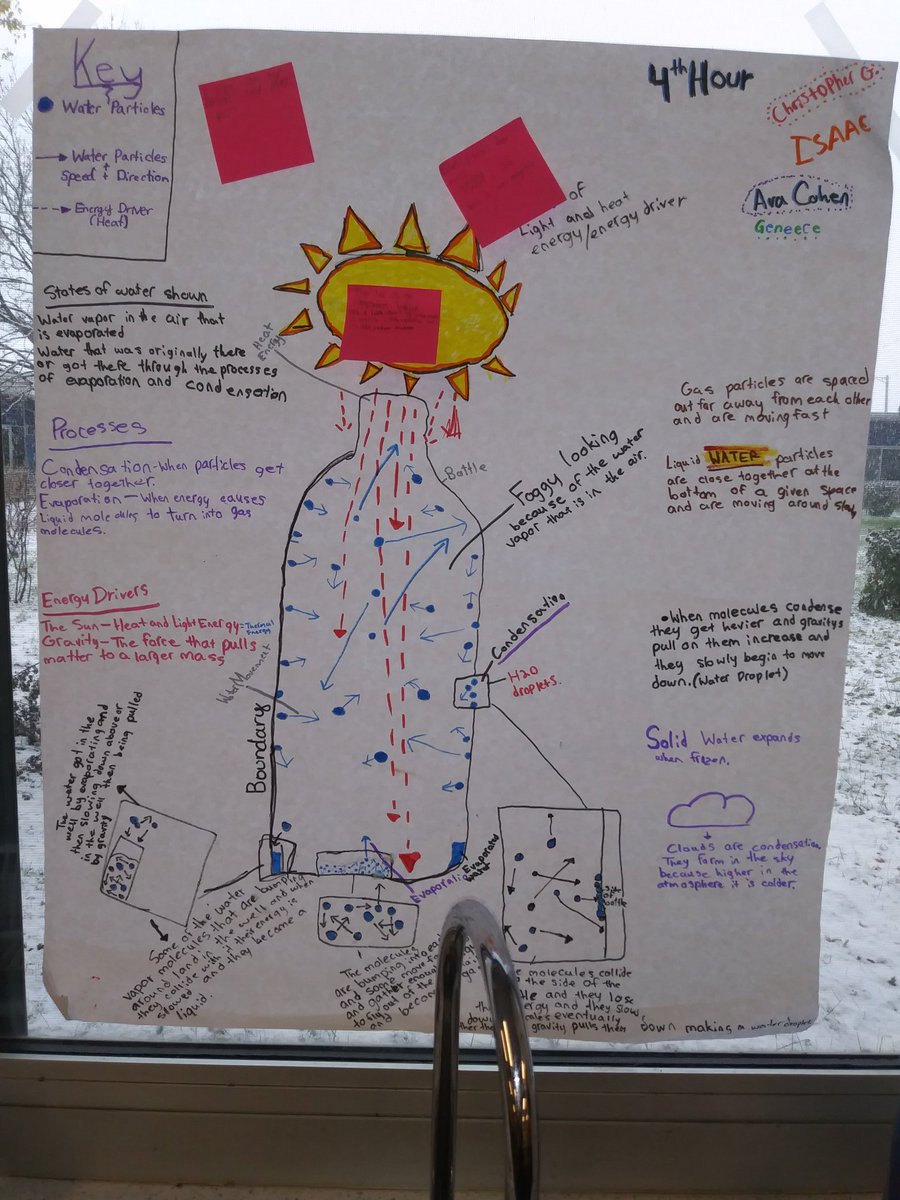 Key
Water Particles
Water Particles
Speed + Direction
Energy Driver
(Heat)
4th Hour
Christopher G.
ISAAC
Ava Cohen
Geneece
of
Light and heat
energy/energy driver
States of water shown
Water vapor in the air that
is evaporated
Water that was originally there
or got there through the processes
of evaporation and condensation
Heat
Energy
Processes
Condensation-When particles get
closer together.
Evaporation-When energy causes
Liquid molecules to turn into gas
molecules.
Energy Drivers
The Sun-Heat and Light Energy=Thermal
Energy
Gravity-The force that pulls
matter to a larger mass
Bottle
Foggy looking
because of the water
vapor that is in the air.
Gas particles are spaced
out far away from each other
and are moving fast
Liquid WATER particles
are close together at the
bottom of a given space
and are moving around
Condensation
H2O
droplets.
•When molecules condense
they get hevier and gravitys
pull on them increase and
they slowly begin to move
down.(Water Droplet)
Solid Water expands
when frozen.
Clouds are condensation.
They form in the sky
because higher in the
atmosphere it is colder.
Water Movement
Boundary
The water got in the
well by evaporating and
then slowing down above or
in the well then being pulled
by gravity
Some of the water
vapor molecules that are bumping
around land in the well and when
they collide with it their energy is
slowed and they become a
liquid.
Evaporation
Evaporated
water
The molecules
are bumping into
and some move
and gather
to fly out of the
and become
of
bottle
molecules collide
the side of the
and they lose
energy and they slow
down eventually
gravity pulls them down making a water droplet